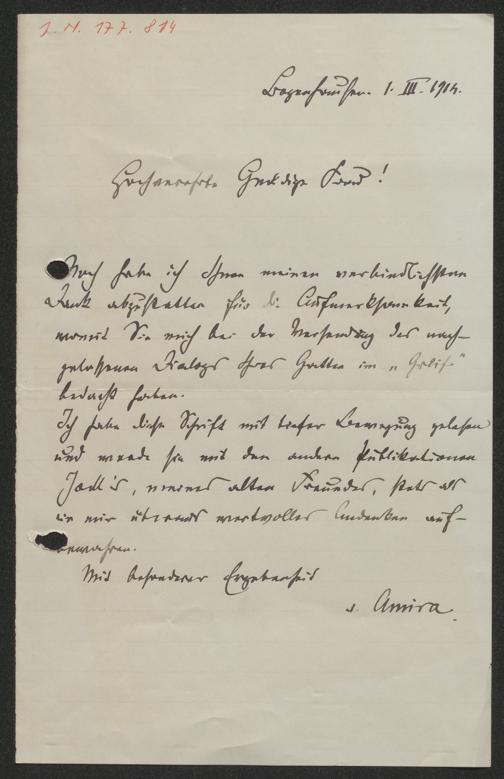 J. N. 177.814
Bogenhausen. 1. III. 1914.
Hochverehrte Gnädige Frau!
Noch habe ich Ihnen meinen verbindlichsten
Dank abzustatten für die Aufmerksamkeit,
womit Sie mich bei der Versendung des nach-
gelassenen Dialogs Ihres Gatten im „
bedacht haben.
Ich habe diese Schrift mit tiefer Bewegung gelesen
und werde sie mit den andern Publikationen
Jodl's, meines alten Freundes, stets als
ein mir überaus wertvolles Andenken auf-
bewahren.
Mit besonderer Ergebenheit
v. Amira.